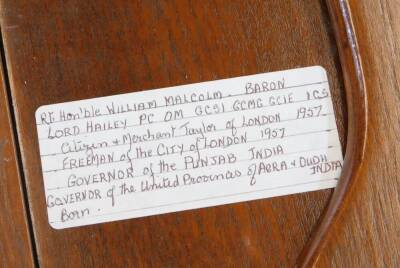 Rt. Hon'ble WILLIAM MALCOLM. BARON
LORD HAILEY PC OM GCSI GCMG GCIE ICS
Citizen & Merchant Taylor of LONDON 1957
FREEMAN of the CITY of LONDON 1957
GOVERNOR of the PUNJAB INDIA
GOVERNOR of the United Provinces of AGRA & OUDH
INDIA
Born.